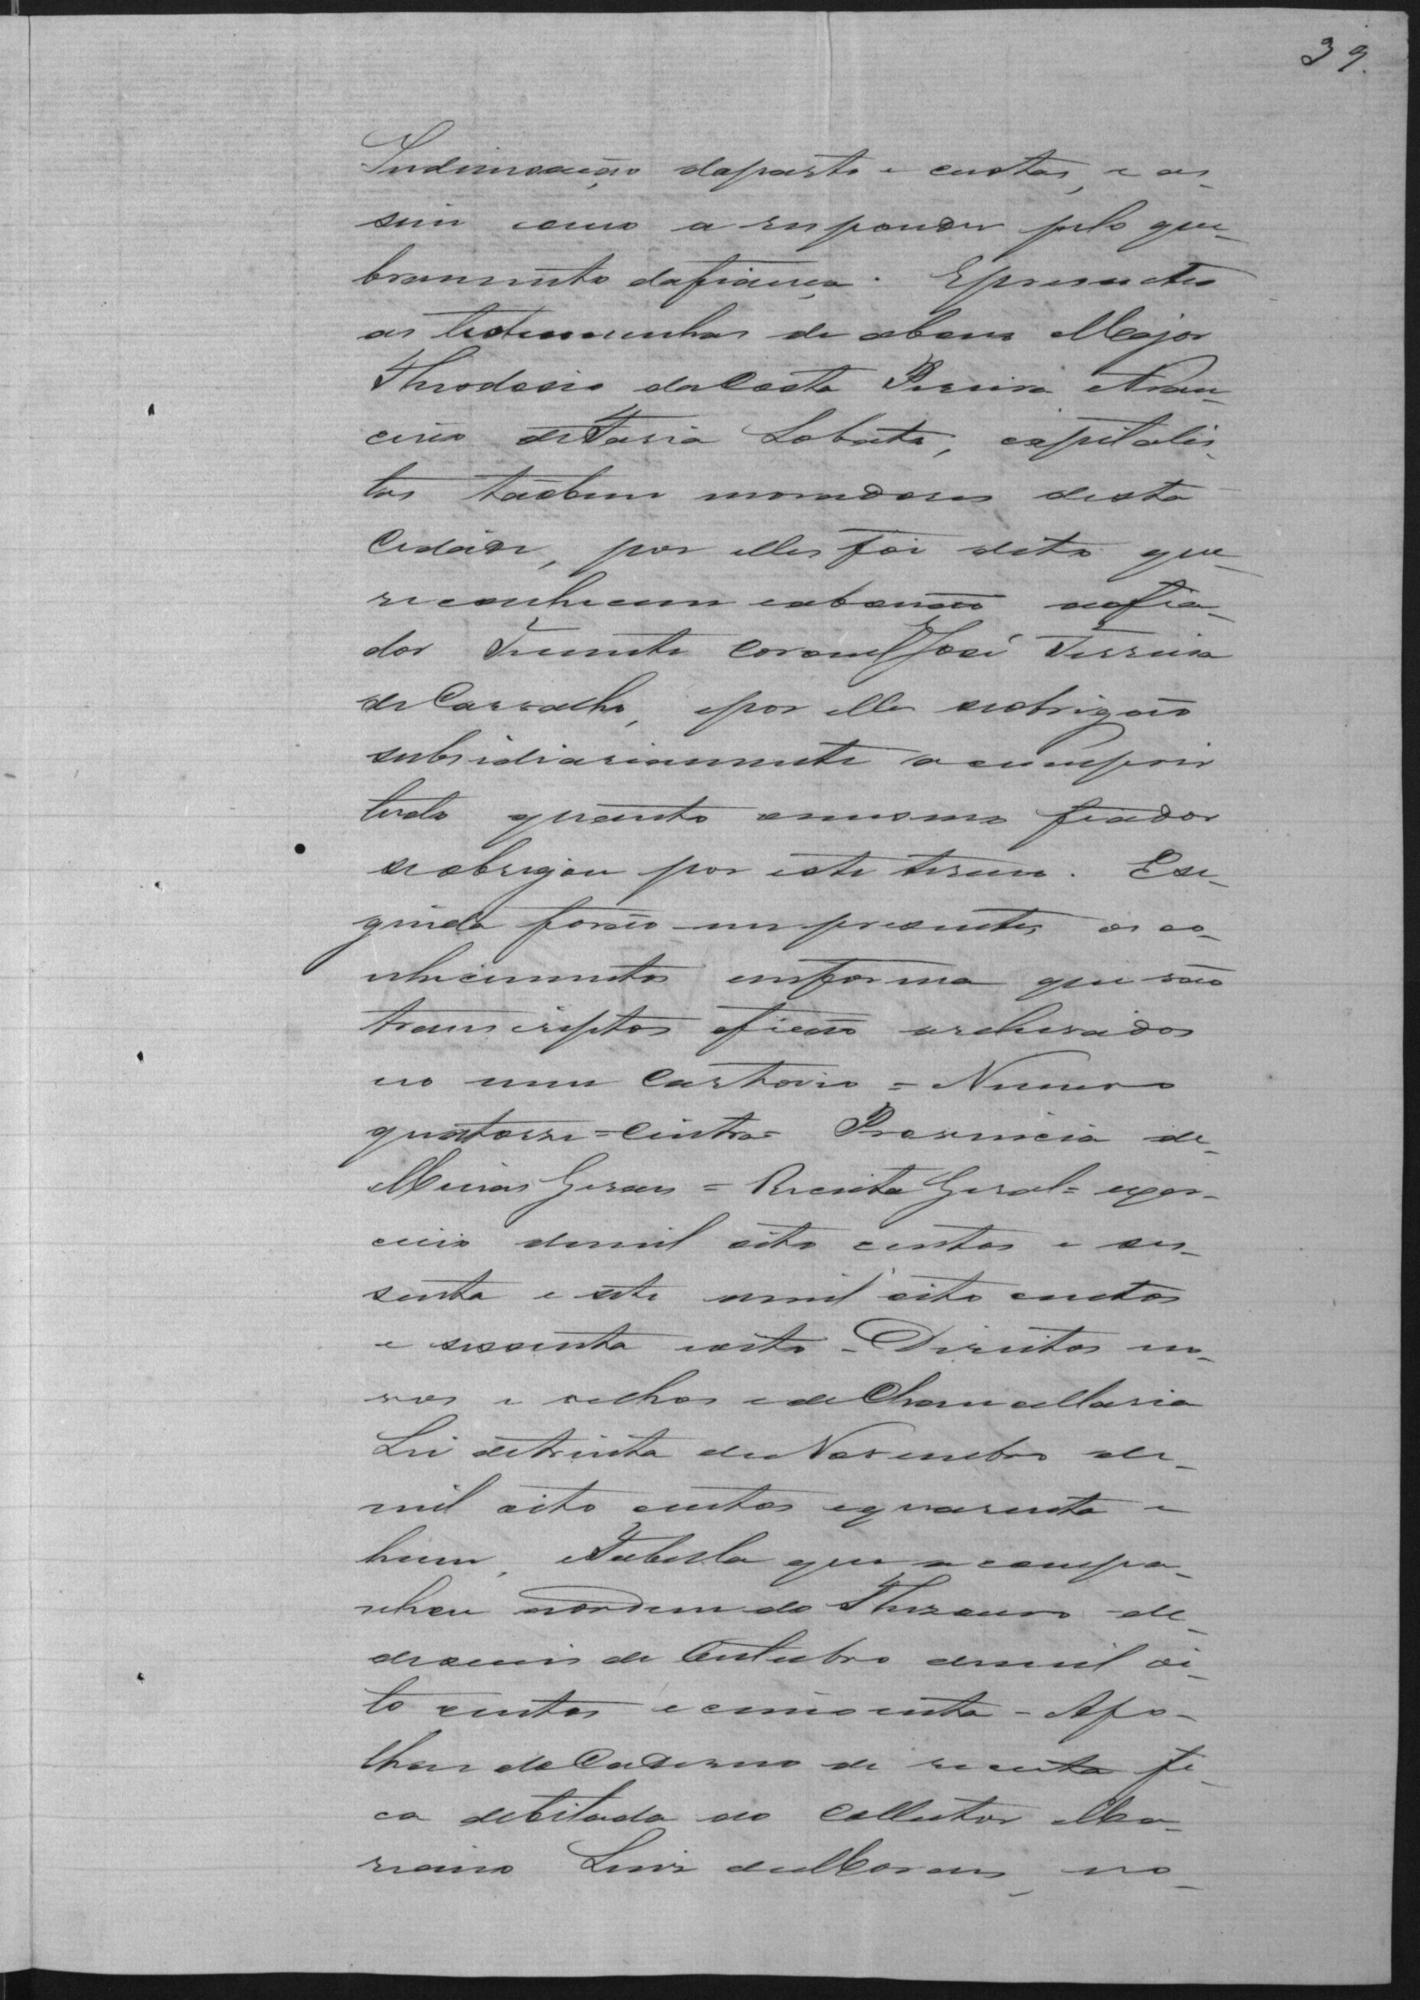 39.
Indimnação daparte e custas, e as-
sim como a responder pelo que-
bramento dafiança. Epresentes
as testemunhas de abono Major
Theodosio daCosta Pereira eFran-
cisco deFaria Lobato, capitalis-
tas tãobem moradores desta
Cidade, por elles foi dito que
reconhecem eabonão aofia-
dor Tenente Coronel José Ferreira
deCarvalho, epor elle seobrigão
subsidiariamente a cumprir
tudo quanto omesmo fiador
seobrigou por este termo. Ese-
guida forão-me presentes os co-
nhecimentos emforma que vão
transcriptos eficão archivados
no meu Cartorio = Numero
quatorze = Cintra = Provincia de
Minas Geraes = Receita Geral = exer-
cicio demil oito centos e ses-
senta e sete a mil oito centos
e sessenta eoito - Direitos no-
vos e velhos e de Chancellaria
Lei detrinta de Novembro de
mil oito centos equarenta e
hum, eTabella que acompa-
nhou aordem do Thezouro de
dezeseis de Outubro demil oi-
to centos e cincoenta - Afo-
lhas do Caderno de receita fi-
ca debitada ao Collector Ma-
riano Luiz deMoraes, no-